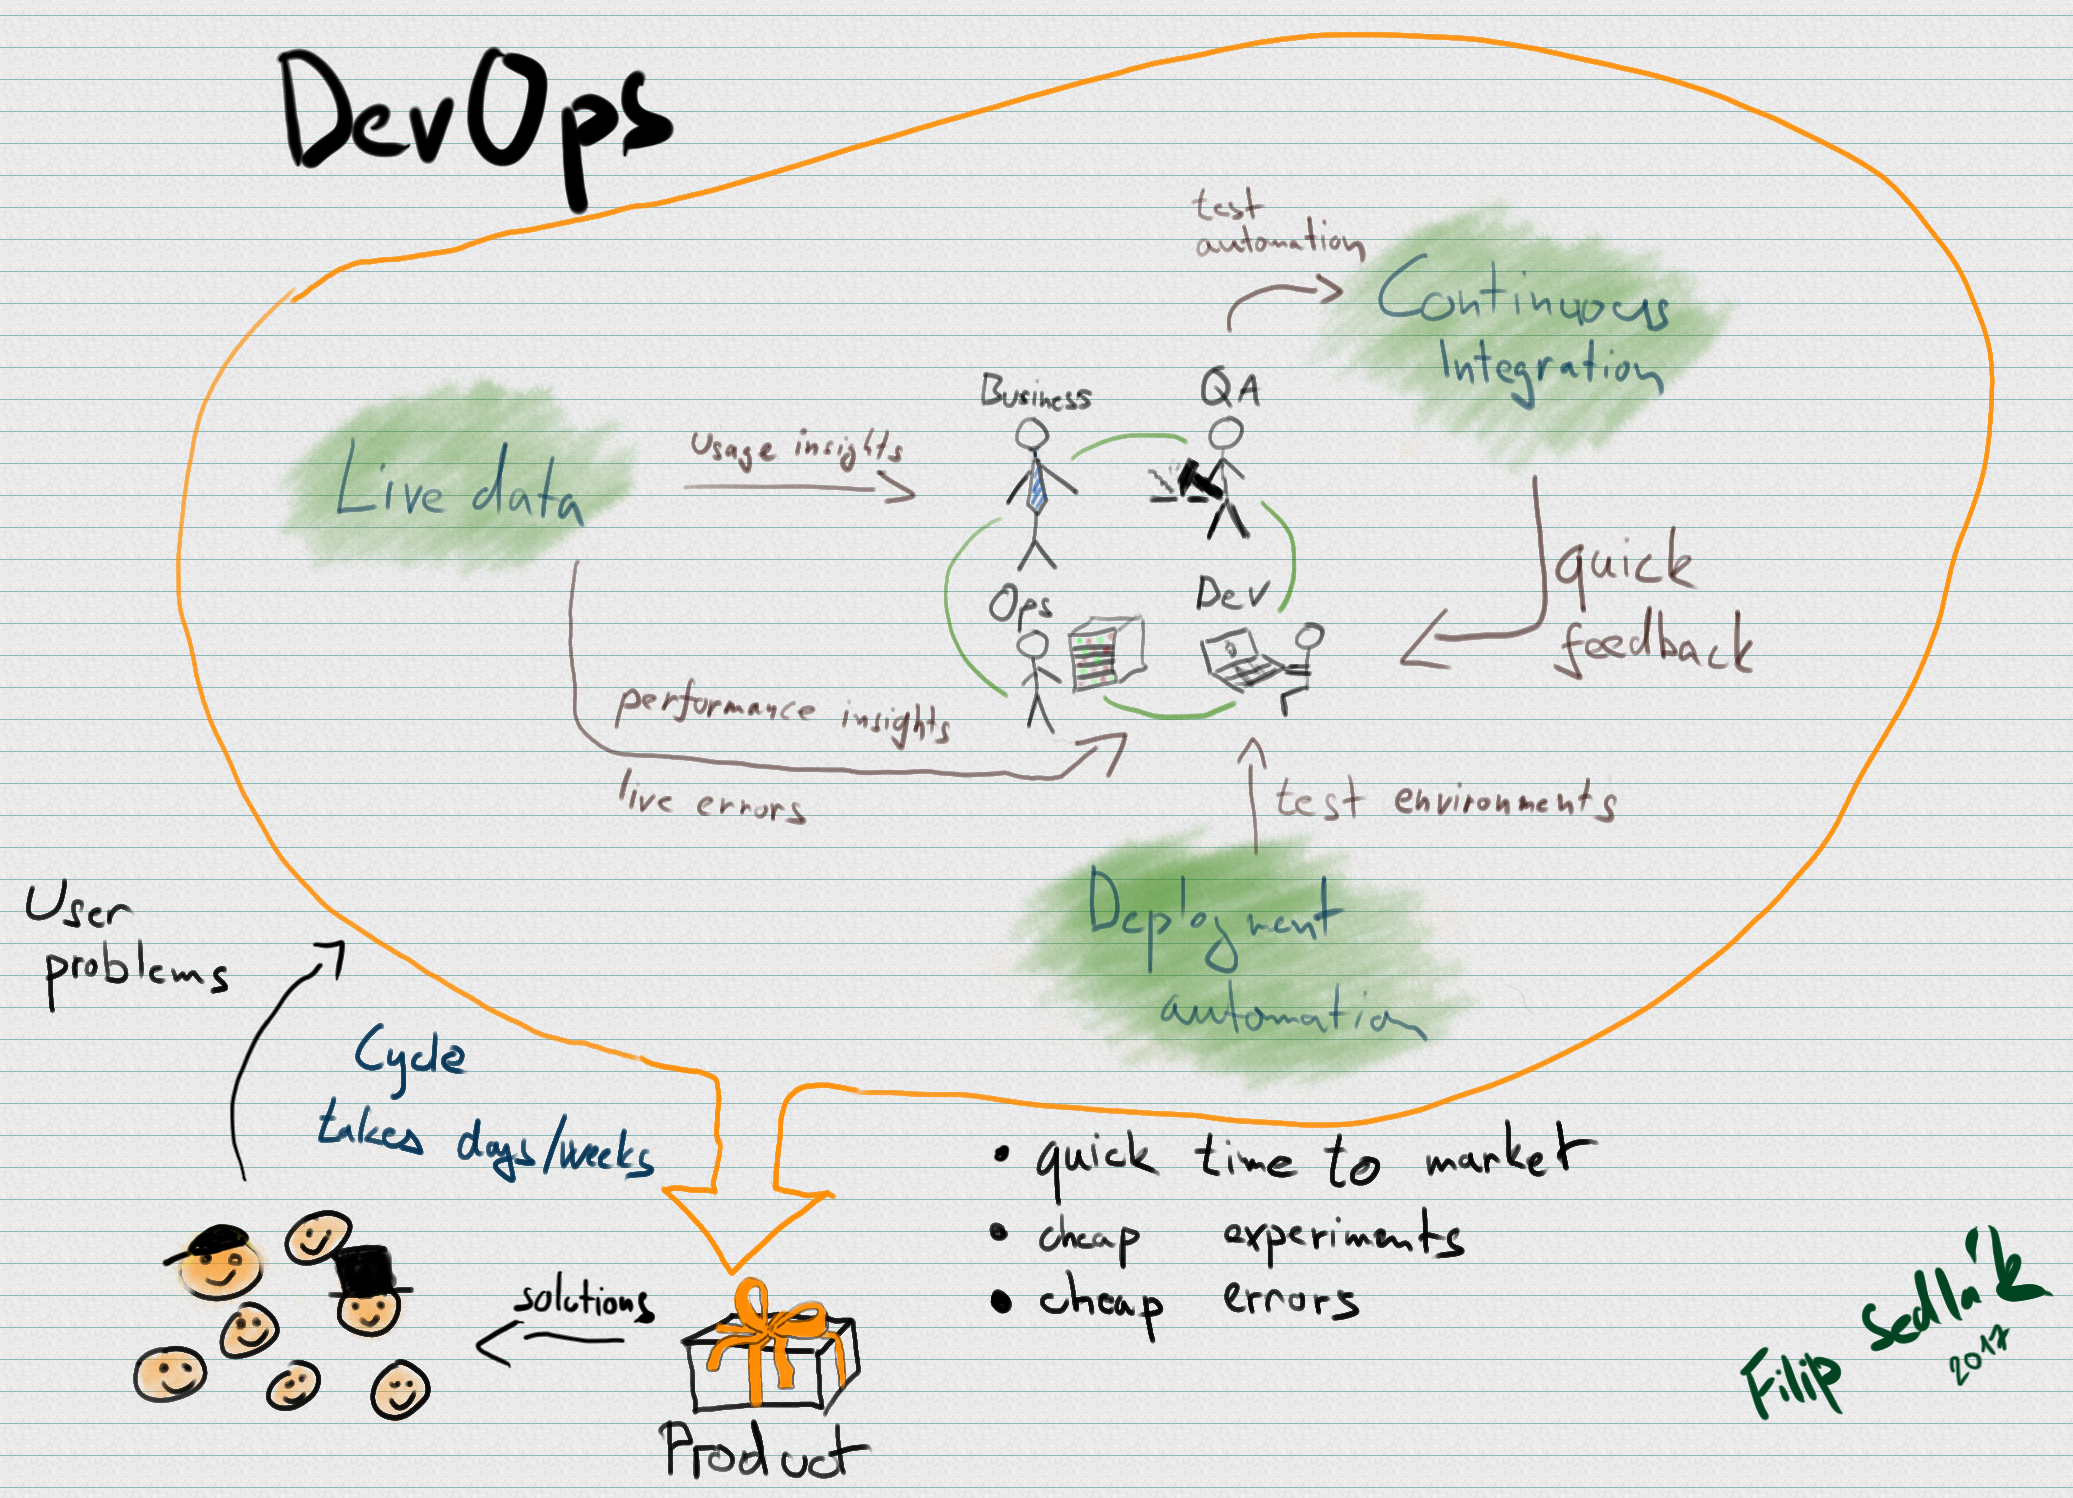 DevOps
test
automation
Continuous
Integration
Business
QA
Usage insights
Live data
quick
feedback
Ops
Dev
performance insights
live errors
test environments
Deployment
automation
User
problems
Cycle
takes days/weeks
• quick time to market
• cheap experiments
• cheap errors
solutions
Product
Filip Sedlák
2017